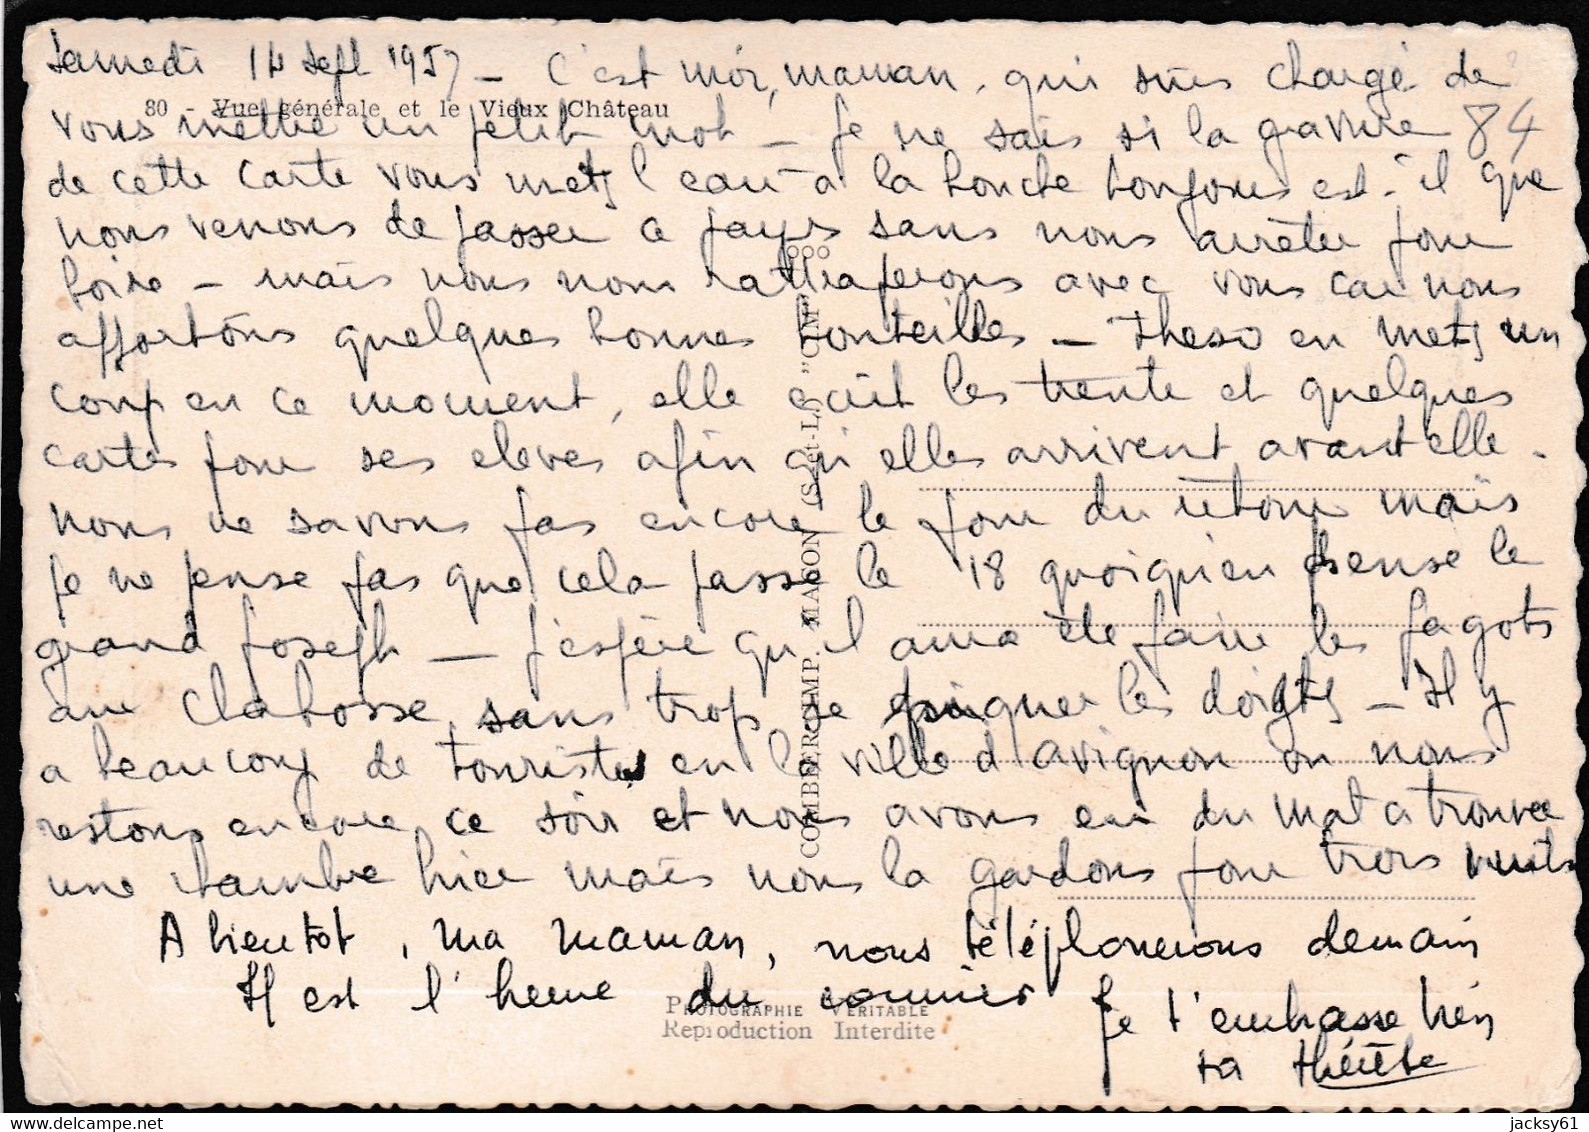 Samedi 14 sept 1957 - C'est moi, maman, qui suis chargé de
80 - Vue générale et le Vieux Château
vous mettre un petit mot - Je ne sais si la gravure
84
de cette carte vous mets l'eau à la bouche toujours est-il que
nous venons de passer ce pays sans nous arrêter pour
boire - mais nous nous rattraperons avec vous car nous
apportons quelques bonnes bouteilles - Theso en mets un
coup en ce moment, elle écrit les trente et quelques
cartes pour ses eleves afin qu'elles arrivent avant elle.
nous ne savons pas encore le jour du retour mais
je ne pense pas que cela passe le 18 quoiqu'en pense le
grand Joseph - J'espère qu'il aura été faire les fagots
au Clabosse sans trop se piquer les doigts - Il y
a beaucoup de touristes en la ville d'avignon ou nous
restons encore ce soir et nous avons eu du mal a trouver
une chambre hier mais nous la gardons pour trois nuits
A bientot, ma maman, nous téléphonerons demain
Il est l'heure du courrier
Je t'embrasse bien
ta Thérèse
COMBIER IMP. MACON (S.-et-L.) "CIM"
PHOTOGRAPHIE VÉRITABLE
Reproduction Interdite
jacksy61